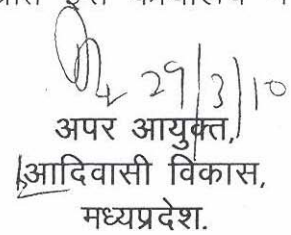 29/3/10
अपर आयुक्त,
आदिवासी विकास,
मध्यप्रदेश.